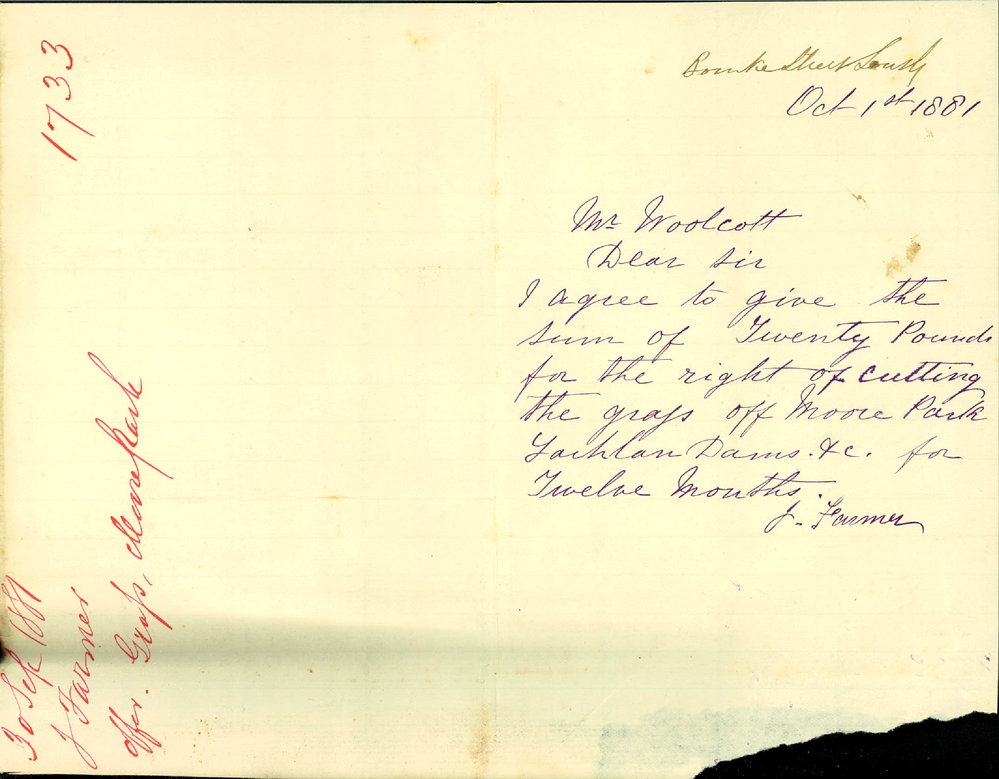 Bourke Street South
Oct 1st 1881
Mr Woolcott
Dear Sir
I agree to give the
sum of Twenty Pounds
for the right of cutting
the grass off Moore Park
Lachlan Dams. &c. for
Twelve Months.
J. Farmer
1733
30 Sep 1881
J Farmer
offer. Grass, Moore Park